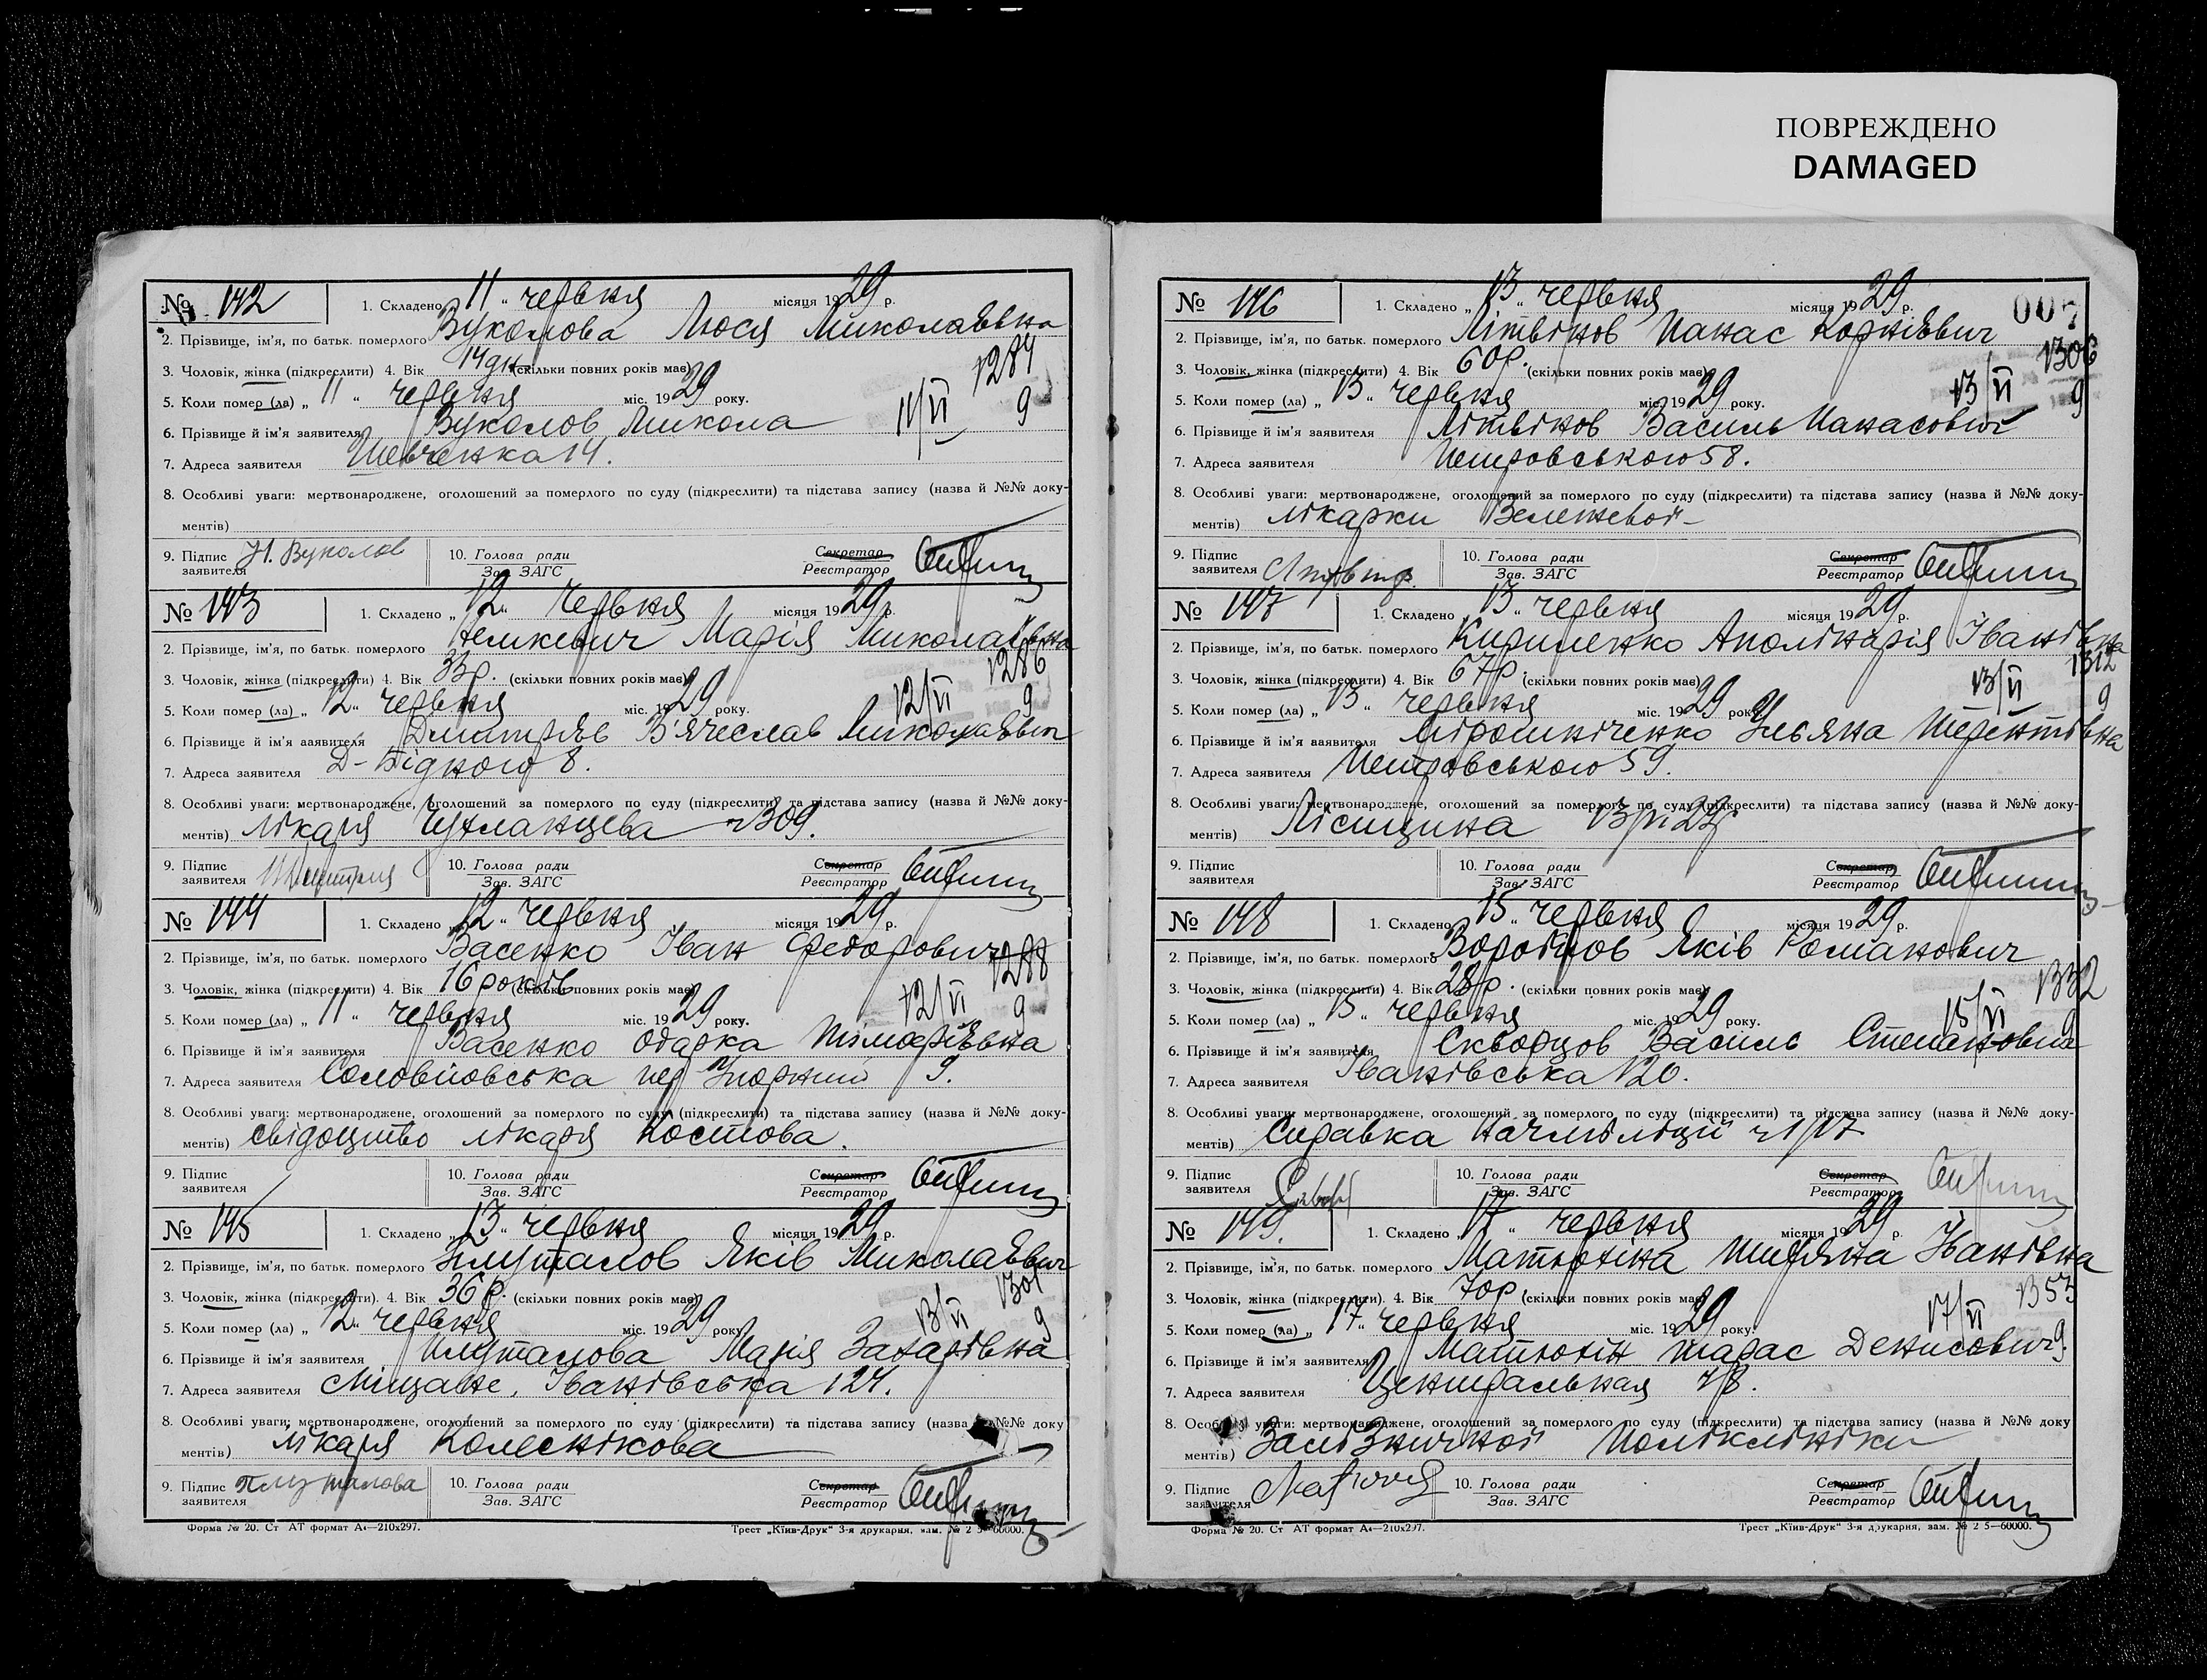 ПОВРЕЖДЕНО
DAMAGED
№ 142 1. Складено „ 11 “ червня місяця 1929 р.
2. Прізвище, ім'я, по батьк. померлого Вуколова Люся Миколаївна
3. Чоловік, жінка (підкреслити) 4. Вік 14 дн. (скільки повних років має) 1284
5. Коли помер (ла) „ 11 “ червня міс. 1929 року. 11/VI 9
6. Прізвище й ім'я заявителя Вуколов Микола
7. Адреса заявителя Шевченка 14.
8. Особливі уваги: мертвонароджене, оголошений за померлого по суду (підкреслити) та підстава запису (назва й №№ доку-
ментів)
9. Підпис заявителя Н. Вуколов 10. Голова ради Зав. ЗАГС Секретар Реєстратор
№ 143 1. Складено „ 12 “ червня місяця 1929 р.
2. Прізвище, ім'я, по батьк. померлого Марія Миколаївна
3. Чоловік, жінка (підкреслити) 4. Вік 33р. (скільки повних років має) 1286
5. Коли помер (ла) „ 12 “ червня міс. 1929 року. 12/VI 9
6. Прізвище й ім'я заявителя Дмитрієв В'ячеслав Миколаєвич
7. Адреса заявителя Д-Бідного 8.
8. Особливі уваги: мертвонароджене, оголошений за померлого по суду (підкреслити) та підстава запису (назва й №№ доку-
ментів) лікаря Чухланцева 309.
9. Підпис заявителя 10. Голова ради Зав. ЗАГС Секретар Реєстратор
№ 144 1. Складено „ 12 “ червня місяця 1929 р.
2. Прізвище, ім'я, по батьк. померлого Васенко Іван Федорович
3. Чоловік, жінка (підкреслити) 4. Вік 16 років (скільки повних років має) 1288
5. Коли помер (ла) „ 11 “ червня міс. 1929 року. 12/VI 9
6. Прізвище й ім'я заявителя Васенко Одарка Тімофієвна
7. Адреса заявителя Соловйовська пер 9.
8. Особливі уваги: мертвонароджене, оголошений за померлого по суду (підкреслити) та підстава запису (назва й №№ доку-
ментів) свідоцтво лікаря Костова.
9. Підпис заявителя 10. Голова ради Зав. ЗАГС Секретар Реєстратор
№ 145 1. Складено „ 13 “ червня місяця 1929 р.
2. Прізвище, ім'я, по батьк. померлого Плуталов Яків Миколаєвич
3. Чоловік, жінка (підкреслити). 4. Вік 36 р. (скільки повних років має) 1301
5. Коли помер (ла) „ 12 “ червня міс. 1929 року. 13/VI 9
6. Прізвище й ім'я заявителя Плуталова Марія Захарівна
7. Адреса заявителя Міщане, Іванівська 124.
8. Особливі уваги: мертвонароджене, оголошений за померлого по суду (підкреслити) та підстава запису (назва й №№ доку
ментів) лікаря Колеснікова
9. Підпис заявителя Плуталова 10. Голова ради Зав. ЗАГС Секретар Реєстратор
Форма № 20. Ст АТ формат А4—210x297. Трест „Київ-Друк“ 3-я друкарня, зам. № 2 5—60000.
№ 146 1. Складено „ 13 “ червня місяця 1929 р. 007
2. Прізвище, ім'я, по батьк. померлого Літвінов Панас Корнієвич
3. Чоловік, жінка (підкреслити) 4. Вік 60р. (скільки повних років має) 1306
5. Коли помер (ла) „ 13 “ червня міс. 1929 року. 13/VI 9
6. Прізвище й ім'я заявителя Літвінов Василь Панасович
7. Адреса заявителя Петровського 58.
8. Особливі уваги: мертвонароджене, оголошений за померлого по суду (підкреслити) та підстава запису (назва й №№ доку-
ментів) лікарки
9. Підпис заявителя 10. Голова ради Зав. ЗАГС Секретар Реєстратор
№ 147 1. Складено „ 13 “ червня місяця 1929 р.
2. Прізвище, ім'я, по батьк. померлого Кириленко Аполінарія Іванівна
3. Чоловік, жінка (підкреслити) 4. Вік 67р. (скільки повних років має) 1312
5. Коли помер (ла) „ 13 “ червня міс. 1929 року. 13/VI 9
6. Прізвище й ім'я заявителя Мірошніченко Ульяна Терентівна
7. Адреса заявителя Петровського 59.
8. Особливі уваги: мертвонароджене, оголошений за померлого по суду (підкреслити) та підстава запису (назва й №№ доку-
ментів) Лісицина
9. Підпис заявителя 10. Голова ради Зав. ЗАГС Секретар Реєстратор
№ 148 1. Складено „ 15 “ червня місяця 1929 р.
2. Прізвище, ім'я, по батьк. померлого Яків Романович
3. Чоловік, жінка (підкреслити) 4. Вік 28р. (скільки повних років має) 1332
5. Коли помер (ла) „ 15 “ червня міс. 1929 року. 15/VI 9
6. Прізвище й ім'я заявителя Скворцов Василь Степанович
7. Адреса заявителя Іванівська 120.
8. Особливі уваги: мертвонароджене, оголошений за померлого по суду (підкреслити) та підстава запису (назва й №№ доку-
ментів) Справка Начміліції
9. Підпис заявителя 10. Голова ради Зав. ЗАГС Секретар Реєстратор
№ 149. 1. Складено „ 17 “ червня місяця 1929 р.
2. Прізвище, ім'я, по батьк. померлого Матюхіна Іванівна
3. Чоловік, жінка (підкреслити). 4. Вік 70р. (скільки повних років має) 1353
5. Коли помер (ла) „ 17 “ червня міс. 1929 року. 17/VI 9
6. Прізвище й ім'я заявителя Матюхін Тарас Денисович
7. Адреса заявителя Центральная
8. Особливі уваги: мертвонароджене, оголошений за померлого по суду (підкреслити) та підстава запису (назва й №№ доку
ментів) Залізничной Поліклініки
9. Підпис заявителя 10. Голова ради Зав. ЗАГС Секретар Реєстратор
Форма № 20. Ст АТ формат А4—210x297. Трест „Київ-Друк“ 3-я друкарня, зам. № 2 5—60000.